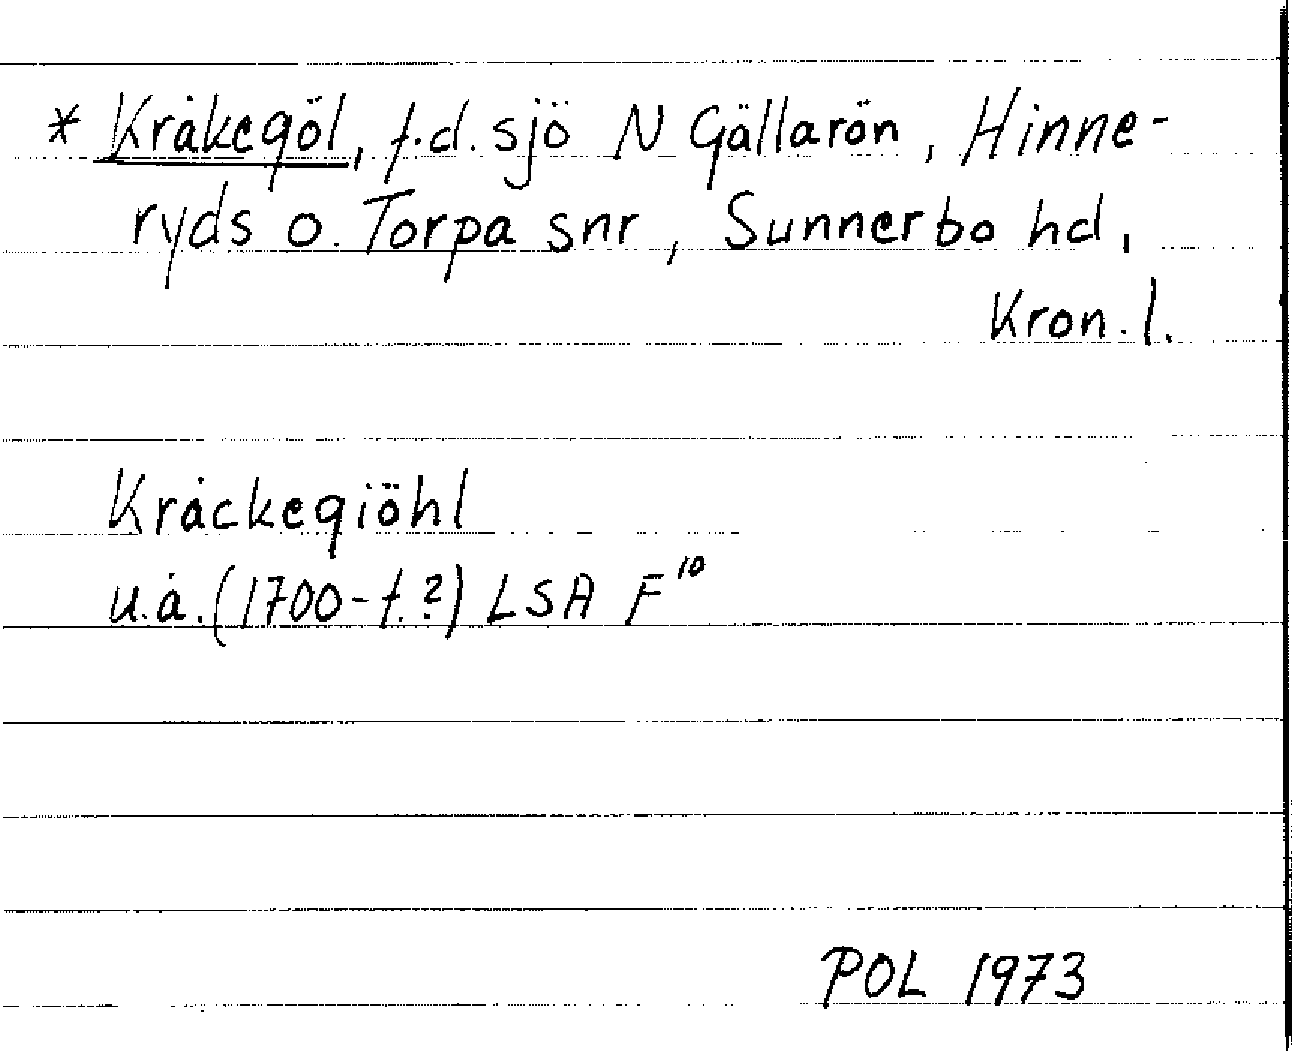 * Kråkegöl, f.d. sjö N Gällarön, Hinne-
ryds o. Torpa snr, Sunnerbo hd,
Kron. l.
Kråckegiöhl
u.å. (1700-t.?) LSA F¹⁰
POL 1973